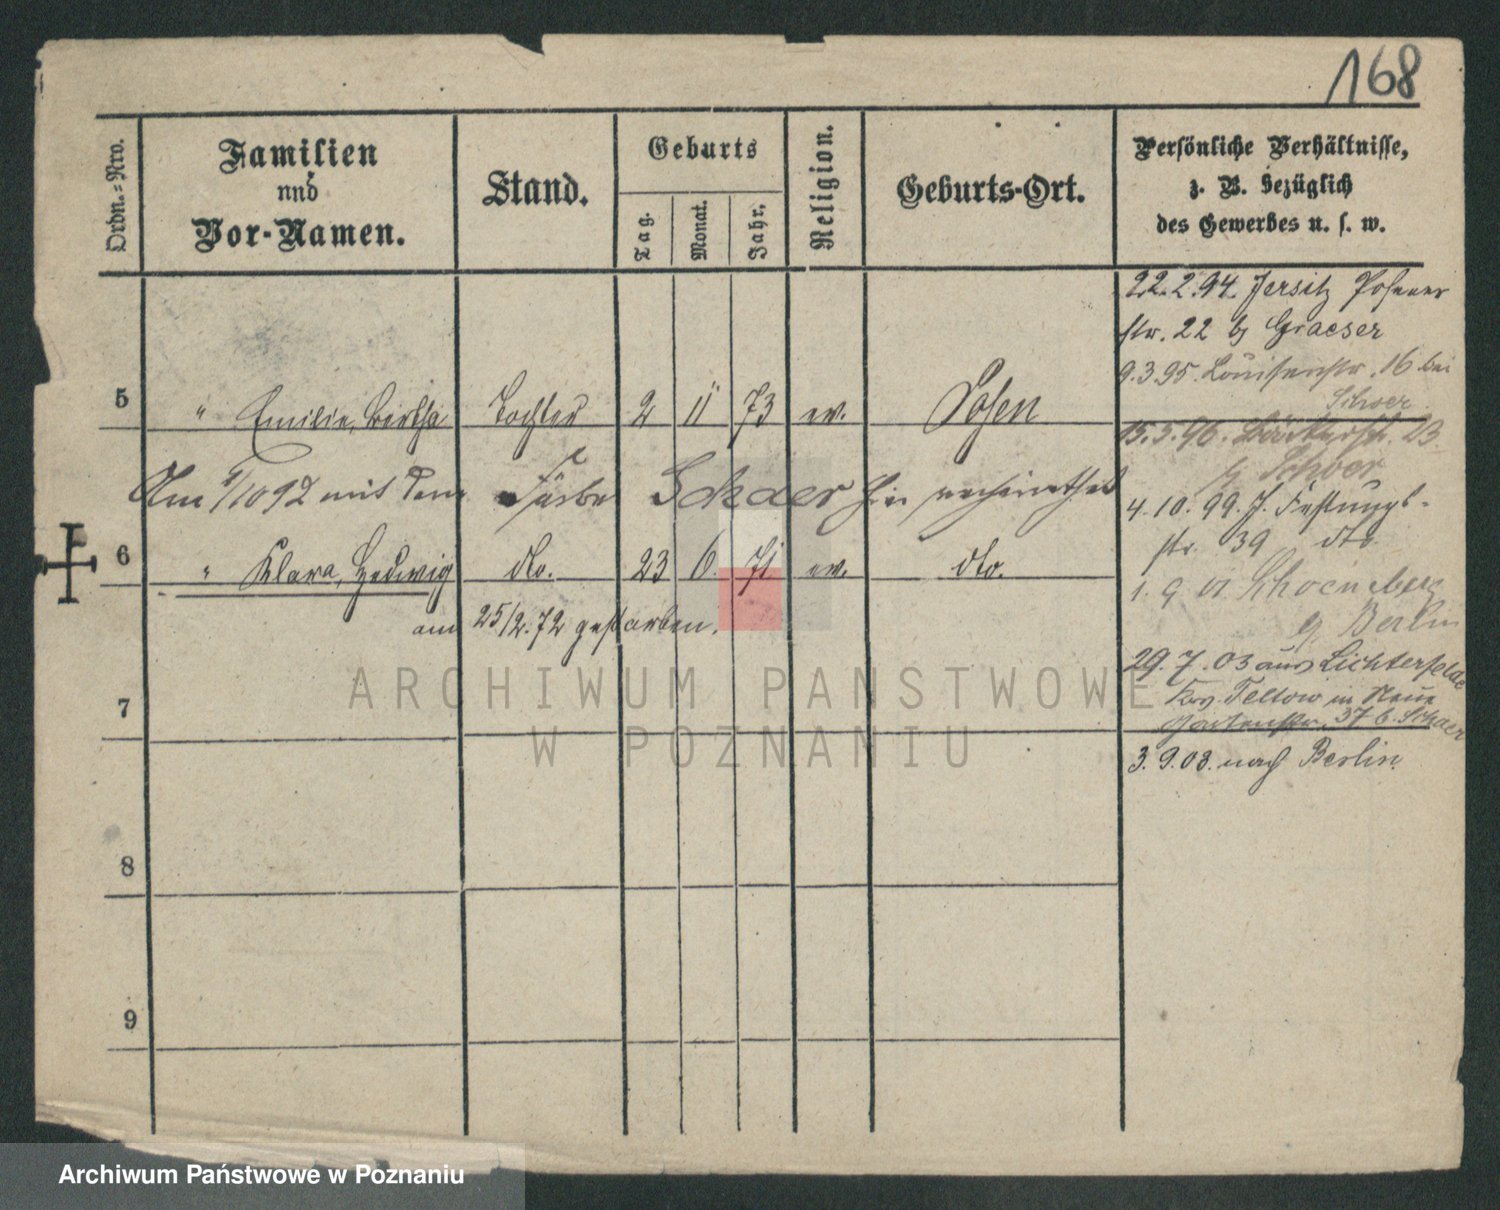 168
Ordn.-Nro.
Familien
und
Vor-Namen.
Stand.
Geburts
Tag.
Monat.
Jahr.
Religion.
Geburts-Ort.
Persönliche Verhältnisse,
z. B. bezüglich
des Gewerbes u. s. w.
22.2.94. Jersitz Posener
str. 22 b Graeser
9.3.95. Louisenstr. 16 bei
Schoer
5 " Emilie, Bertha Tochter 2 11 73 ev. Posen
15.5.96. 23
b Schoer
Am 1/10 92 mit dem Färber Schaer hier verheirathet
4.10.99. J. Festungs-
str. 39 dto.
6 " Klara, Hedwig dto. 23 6. 71 ev. dto.
1. 9 01 Schoeneberg
b Berlin
am 25/2.72 gestorben.
29.7.03 aus Lichterfelde
Krs. Teltow in Neue
Gartenstr. 37 b. Schaer
7
3.9.03. nach Berlin.
8
9
ARCHIWUM PAŃSTWOWE
W POZNANIU
Archiwum Państwowe w Poznaniu